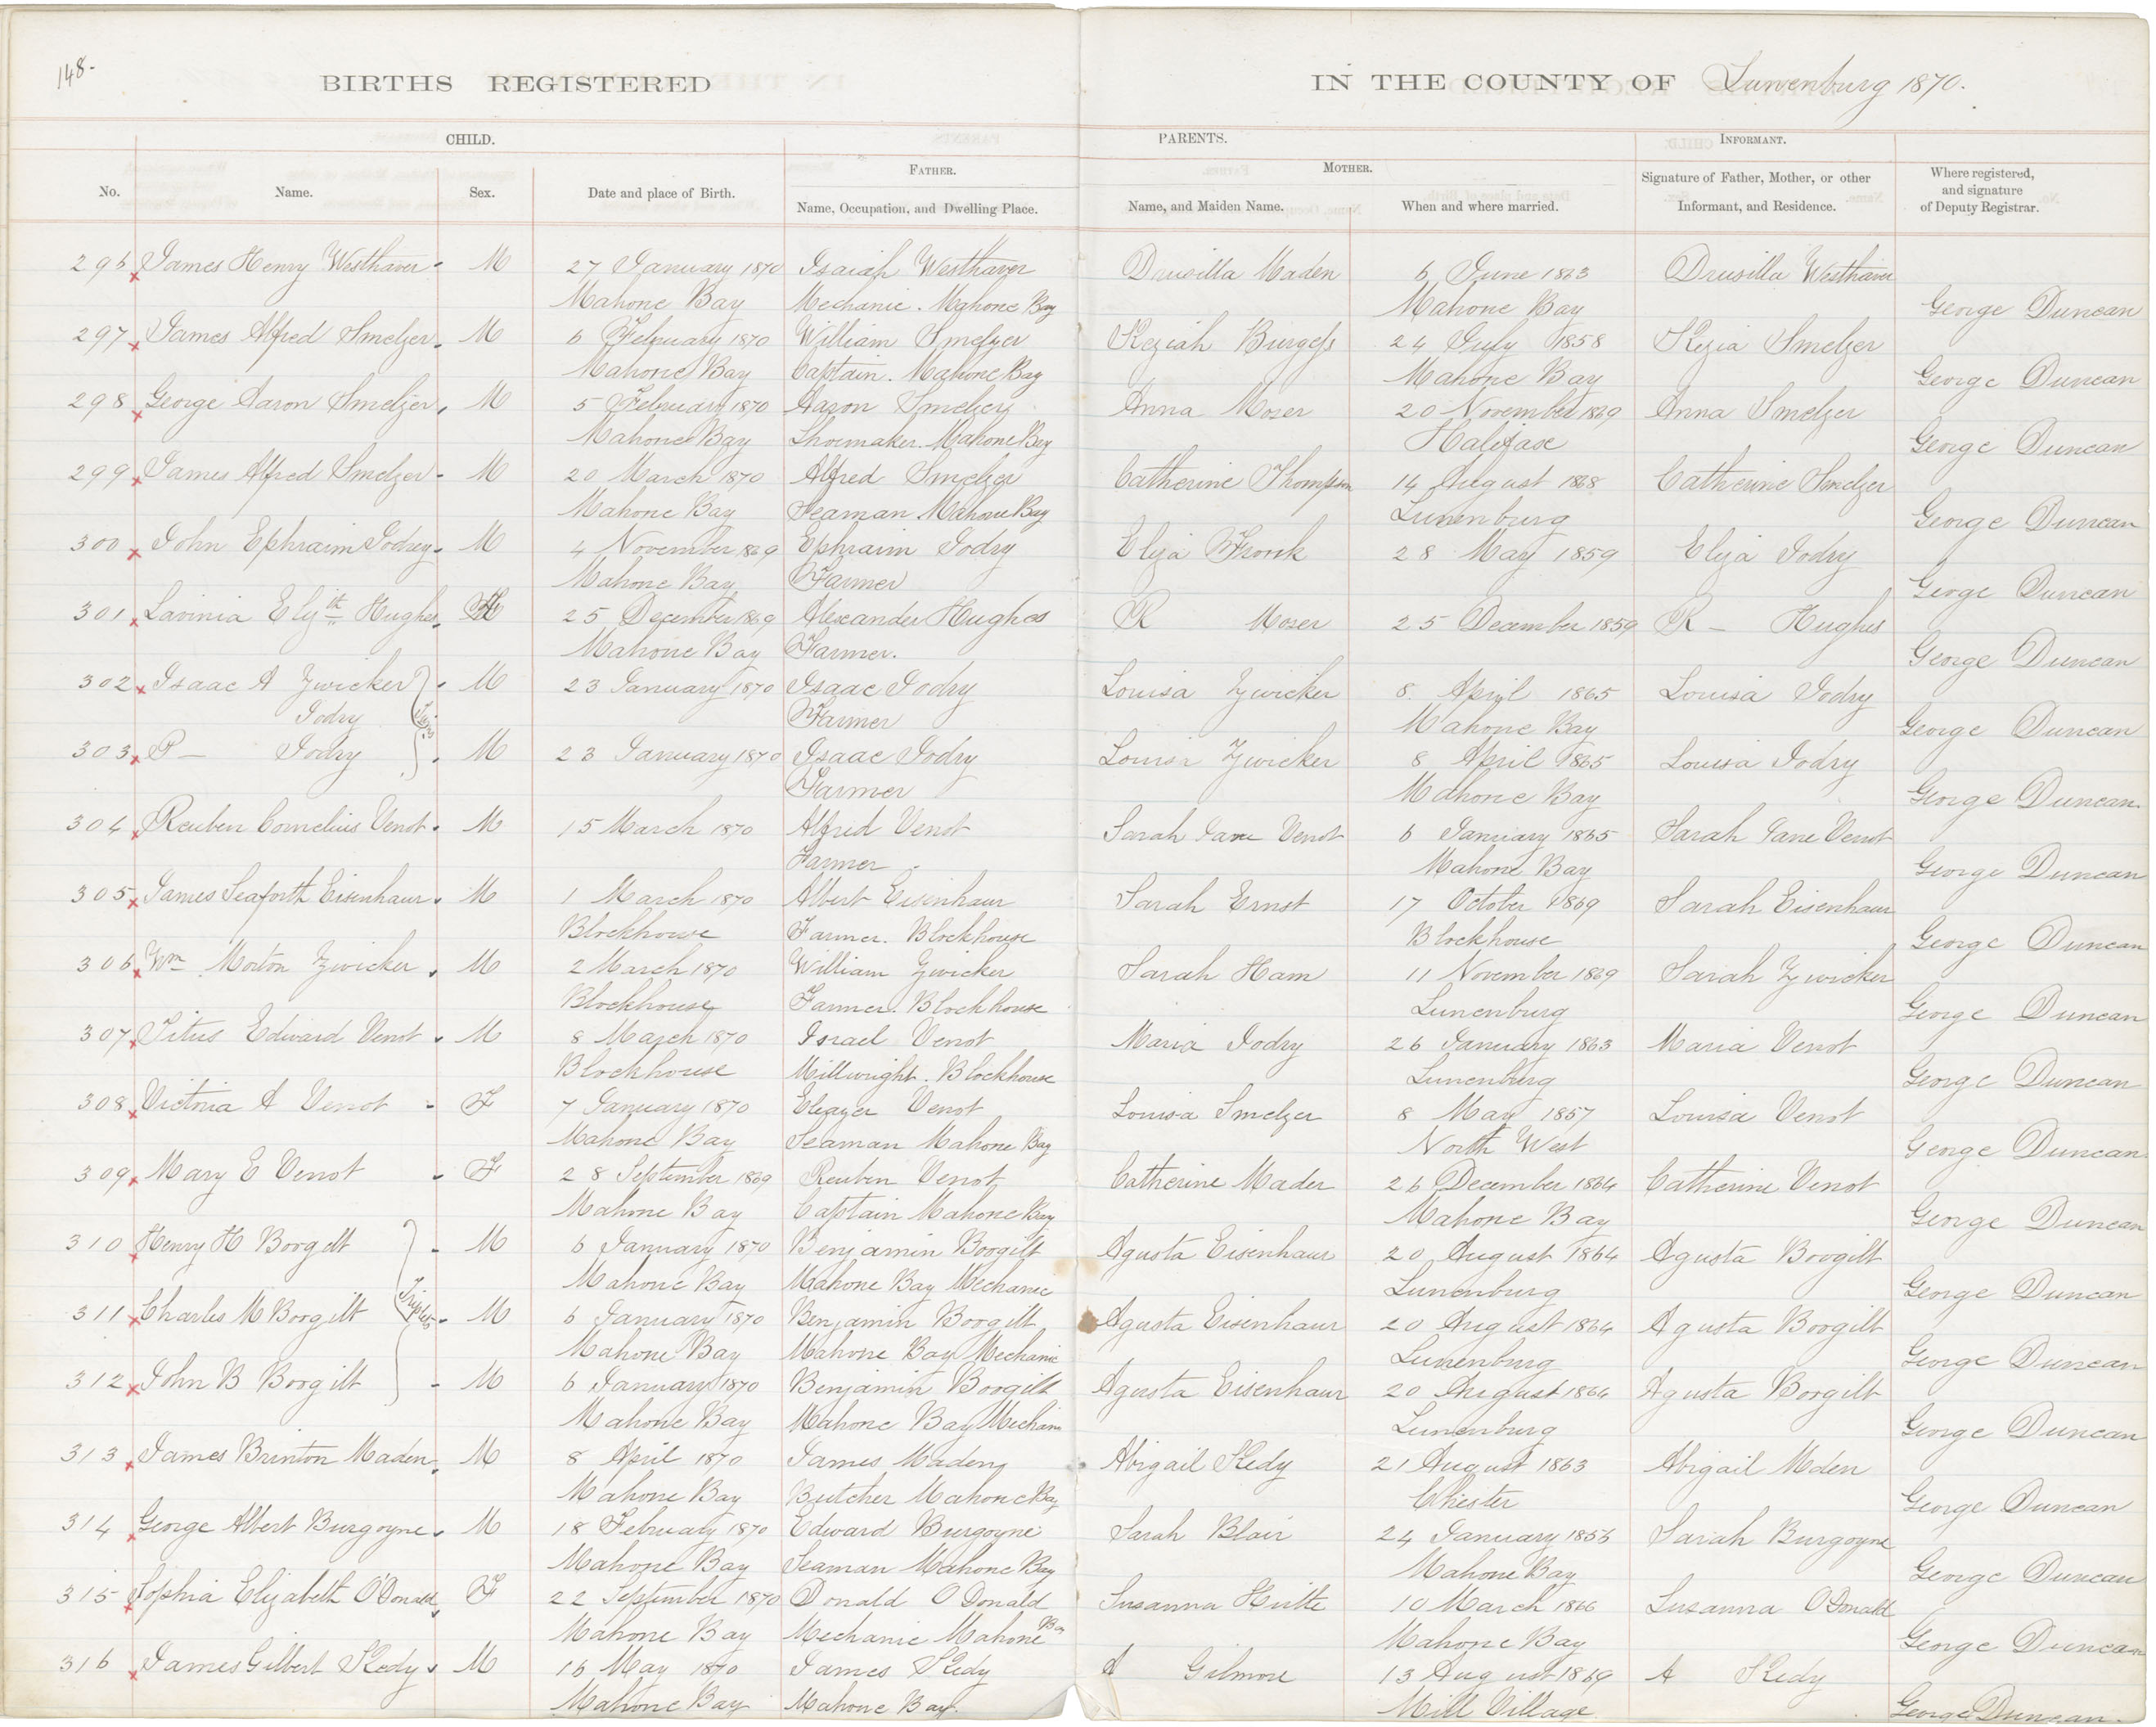 148.
BIRTHS REGISTERED IN THE COUNTY OF Lunenburg 1870.
CHILD. PARENTS. INFORMANT.
FATHER. MOTHER.
No. Name. Sex. Date and place of Birth. Name, Occupation, and Dwelling Place. Name, and Maiden Name. When and where married. Signature of Father, Mother, or other Informant, and Residence. Where registered, and signature of Deputy Registrar.
296 James Henry Westhaver M 27 January 1870 Isaiah Westhaver Drusilla Maden 6 June 1863 Drusilla Westhaver
Mahone Bay Mechanic. Mahone Bay Mahone Bay George Duncan
297 James Alfred Smelzer M 6 February 1870 William Smelzer Keziah Burgess 24 July 1858 Kezia Smelzer
Mahone Bay Captain. Mahone Bay Mahone Bay George Duncan
298 George Aaron Smelzer M 5 February 1870 Aaron Smelzer Anna Moser 20 November 1869 Anna Smelzer
Mahone Bay Shoemaker. Mahone Bay Halifax George Duncan
299 James Alfred Smelzer M 20 March 1870 Alfred Smelzer Catherine Thompson 14 August 1868 Catherine Smelzer
Mahone Bay Seaman Mahone Bay Lunenburg George Duncan
300 John Ephraim Jodry M 4 November 1869 Ephraim Jodry Eliza Fronk 28 May 1859 Eliza Jodry
Mahone Bay Farmer George Duncan
301 Lavinia Elizth Hughes 25 December 1869 Alexander Hughes R Moser 25 December 1859 R - Hughes
Mahone Bay Farmer. George Duncan
302 Isaac A Zwicker M 23 January 1870 Isaac Jodry Louisa Zwicker 8 April 1865 Louisa Jodry
Jodry Farmer Mahone Bay George Duncan
303 P - Jodry M 23 January 1870 Isaac Jodry Louisa Zwicker 8 April 1865 Louisa Jodry
Farmer Mahone Bay George Duncan.
304 Reuben Cornelius Venot M 15 March 1870 Alfred Venot Sarah Jane Venot 6 January 1865 Sarah Jane Venot
Farmer Mahone Bay George Duncan
305 James Seaforth Eisenhaur M 1 March 1870 Albert Eisenhaur Sarah Ernst 17 October 1869 Sarah Eisenhaur
Blockhouse Farmer. Blockhouse Blockhouse George Duncan
306 Wm Morton Zwicker M 2 March 1870 William Zwicker Sarah Ham 11 November 1869 Sarah Zwicker
Blockhouse Farmer. Blockhouse Lunenburg George Duncan
307 Titus Edward Venot M 8 March 1870 Israel Venot Maria Jodry 26 January 1863 Maria Venot
Blockhouse Millwright. Blockhouse Lunenburg George Duncan
308 Victoria A Venot F 7 January 1870 Eleazer Venot Louisa Smelzer 8 May 1857 Louisa Venot
Mahone Bay Seaman Mahone Bay North West George Duncan
309 Mary E Venot F 28 September 1869 Reuben Venot Catherine Mader 26 December 1864 Catherine Venot
Mahone Bay Captain Mahone Bay Mahone Bay George Duncan
310 Henry H Borgelt M 6 January 1870 Benjamin Boogilt Agusta Eisenhaur 20 August 1864 Agusta Boogilt
Mahone Bay Mahone Bay Mechanic Lunenburg George Duncan
311 Charles M Borgilt Triplets M 6 January 1870 Benjamin Boogilt Agusta Eisenhaur 20 August 1864 Agusta Boogilt
Mahone Bay Mahone Bay Mechanic Lunenburg George Duncan
312 John B Borgilt M 6 January 1870 Benjamin Borgilt Agusta Eisenhaur 20 August 1864 Agusta Borgilt
Mahone Bay Mahone Bay Mechanic Lunenburg George Duncan
313 James Brinton Maden M 8 April 1870 James Maden Abigail Kedy 21 August 1863 Abigail Mden
Mahone Bay Butcher Mahone Bay Chester George Duncan
314 George Albert Burgoyne M 18 February 1870 Edward Burgoyne Sarah Blair 24 January 1856 Sarah Burgoyne
Mahone Bay Seaman Mahone Bay Mahone Bay George Duncan
315 Sophia Elizabeth O'Donald F 22 September 1870 Donald O Donald Susanna Hirtle 10 March 1866 Susanna O Donald
Mahone Bay Mechanic Mahone Bay Mahone Bay George Duncan
316 James Gilbert Kedy M 16 May 1870 James Kedy A Gilmore 13 August 1869 A Kedy
Mahone Bay Mahone Bay. Mill Village George Duncan.